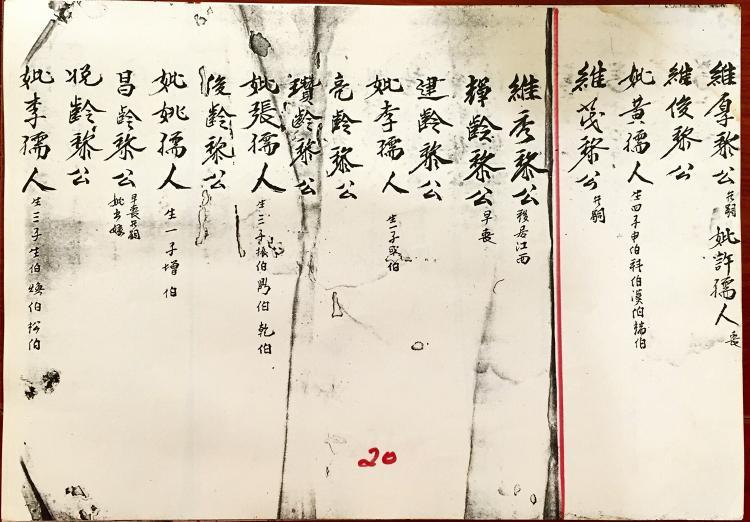 維厚黎公 無嗣 妣許孺人 喪
維俊黎公
妣黃孺人 生四子申伯科伯漢伯端伯
維茂黎公 無嗣
維秀黎公 移居江西
輝齡黎公 早喪
建齡黎公
妣李孺人 生一子 伯
亮齡黎公
瓚齡黎公
妣張孺人 生三子振伯 伯乾伯
俊齡黎公
妣姚孺人 生一子增伯
昌齡黎公 早喪無嗣 妣出嫁
悅齡黎公
妣李孺人 生三子生伯煥伯松伯
20